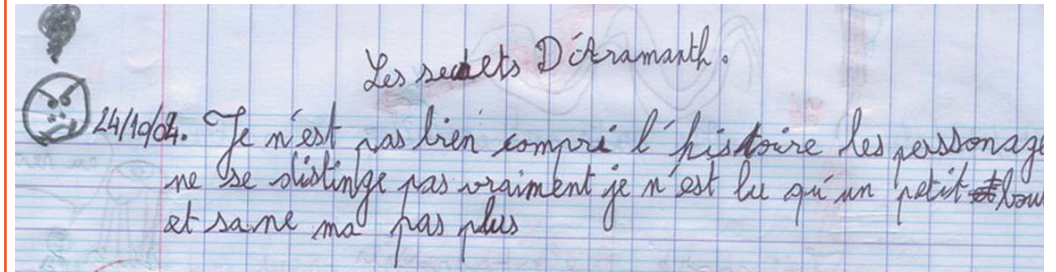 Les secrets D'Aramanth.
24/10/04. Je n'est pas bien compri l'histoire les perssonage
ne se distinge pas vraiment je n'est lu qu'un petit bou
et sa ne ma pas plus